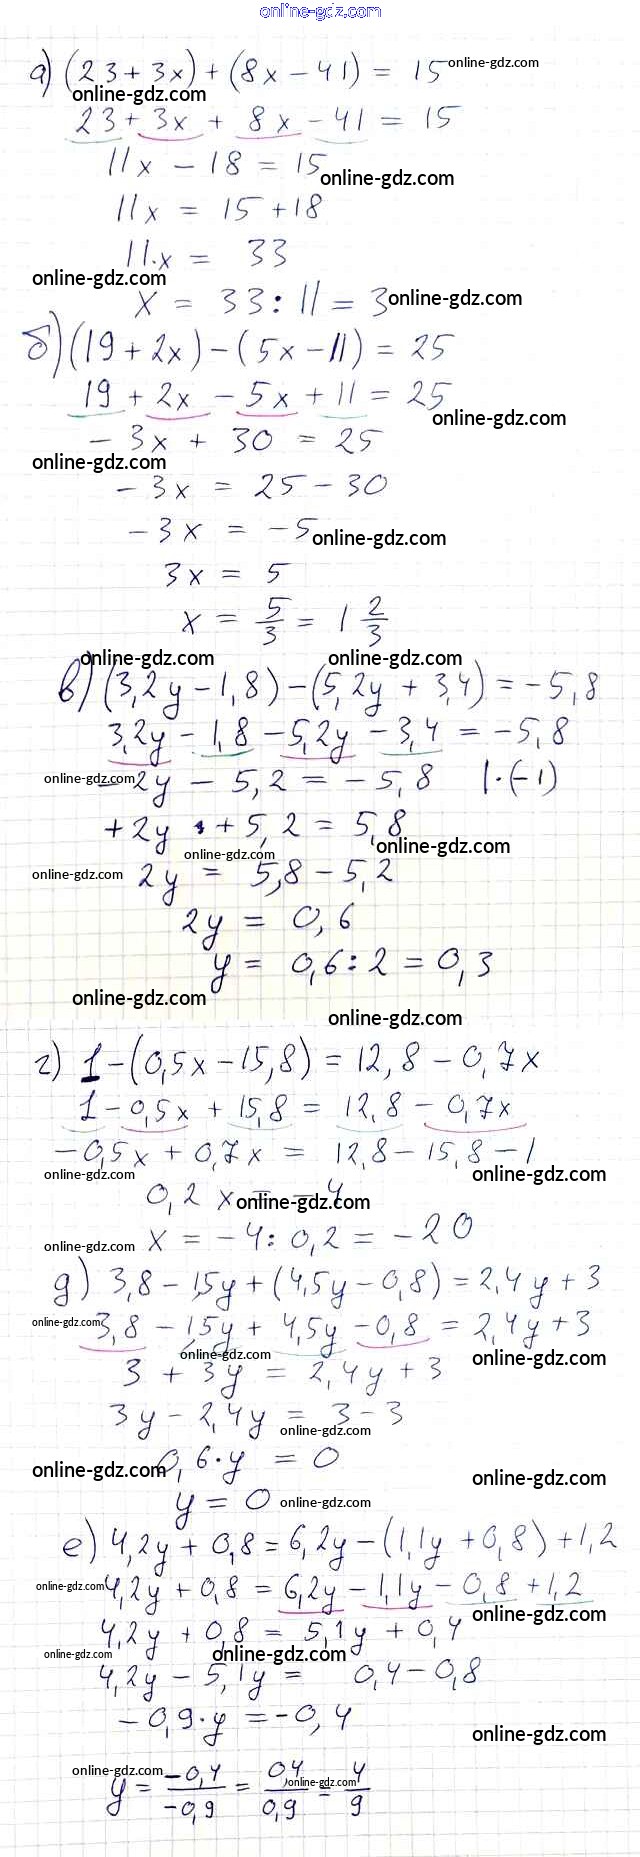 online-gdz.com
а) (23 + 3x) + (8x - 41) = 15 online-gdz.com
online-gdz.com
23 + 3x + 8x - 41 = 15
11x - 18 = 15
online-gdz.com
11x = 15 + 18
11·x = 33
online-gdz.com
x = 33 : 11 = 3 online-gdz.com
б) (19 + 2x) - (5x - 11) = 25
19 + 2x - 5x + 11 = 25
online-gdz.com
- 3x + 30 = 25
online-gdz.com
- 3x = 25 - 30
- 3x = - 5 online-gdz.com
3x = 5
x = 5/3 = 1 2/3
online-gdz.com online-gdz.com
в) (3,2y - 1,8) - (5,2y + 3,4) = - 5,8
3,2y - 1,8 - 5,2y - 3,4 = - 5,8
online-gdz.com - 2y - 5,2 = - 5,8 | · (-1)
+ 2y + 5,2 = 5,8
online-gdz.com online-gdz.com
online-gdz.com 2y = 5,8 - 5,2
2y = 0,6
y = 0,6 : 2 = 0,3
online-gdz.com
online-gdz.com
г) 1 - (0,5x - 15,8) = 12,8 - 0,7x
1 - 0,5x + 15,8 = 12,8 - 0,7x
- 0,5x + 0,7x = 12,8 - 15,8 - 1
online-gdz.com online-gdz.com
0,2 x = - 4 online-gdz.com
online-gdz.com x = - 4 : 0,2 = - 20
д) 3,8 - 1,5y + (4,5y - 0,8) = 2,4y + 3
online-gdz.com 3,8 - 1,5y + 4,5y - 0,8 = 2,4y + 3
online-gdz.com online-gdz.com
3 + 3y = 2,4y + 3
3y - 2,4y = 3 - 3
online-gdz.com
0,6·y = 0
online-gdz.com online-gdz.com
y = 0 online-gdz.com
е) 4,2y + 0,8 = 6,2y - (1,1y + 0,8) + 1,2
online-gdz.com 4,2y + 0,8 = 6,2y - 1,1y - 0,8 + 1,2
online-gdz.com
4,2y + 0,8 = 5,1y + 0,4
online-gdz.com online-gdz.com
4,2y - 5,1y = 0,4 - 0,8
- 0,9·y = - 0,4
online-gdz.com
online-gdz.com
y = -0,4/-0,9 = 0,4/0,9 = 4/9
online-gdz.com